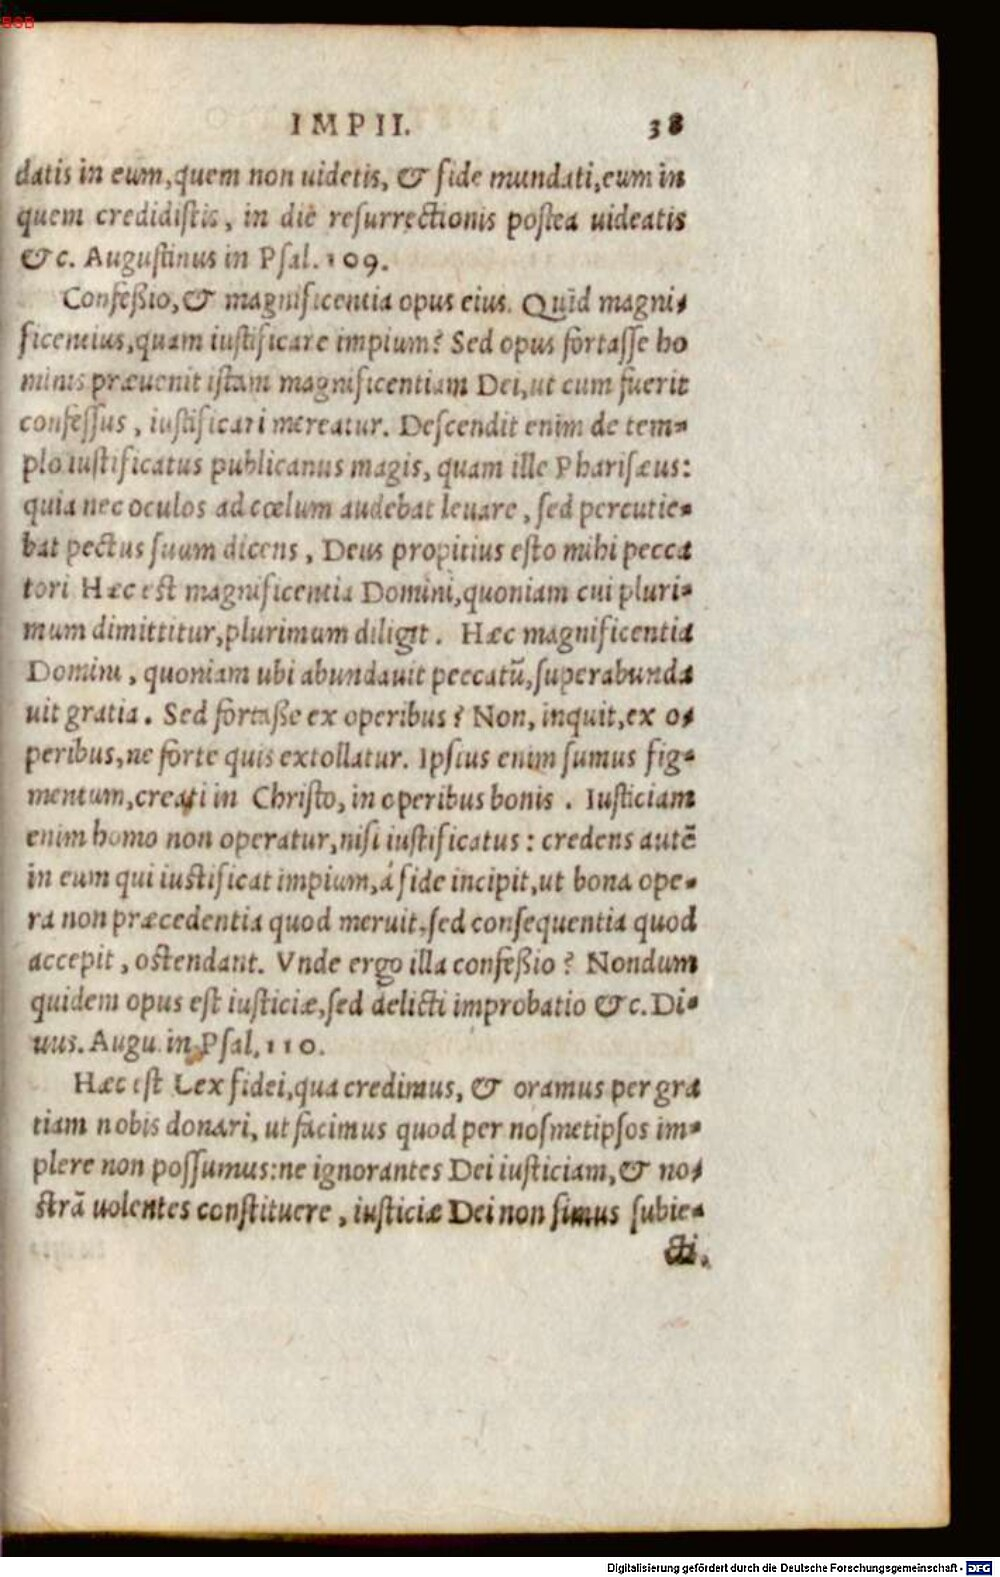 BSB
IMPII. 38
datis in eum, quem non uidetis, & fide mundati, eum in
quem credidistis, in die resurrectionis postea uideatis
&c. Augustinus in Psal. 109.
Confeßio, & magnificentia opus eius. Quid magni-
ficentius, quam iustificare impium? Sed opus fortasse ho
minis præuenit istam magnificentiam Dei, ut cum fuerit
confessus, iustificari mereatur. Descendit enim de tem-
plo iustificatus publicanus magis, quam ille Pharisæus:
quia nec oculos ad cœlum audebat leuare, sed percutie-
bat pectus suum dicens, Deus propitius esto mihi pecca
tori Hæc est magnificentia Domini, quoniam cui pluri-
mum dimittitur, plurimum diligit. Hæc magnificentia
Domini, quoniam ubi abundauit peccatū, superabunda
uit gratia. Sed fortaße ex operibus? Non, inquit, ex o-
peribus, ne forte quis extollatur. Ipsius enim sumus fig-
mentum, creati in Christo, in operibus bonis. Iusticiam
enim homo non operatur, nisi iustificatus: credens autē
in eum qui iustificat impium, á fide incipit, ut bona ope-
ra non præcedentia quod meruit, sed consequentia quod
accepit, ostendant. Vnde ergo illa confeßio? Nondum
quidem opus est iusticiæ, sed delicti improbatio &c. Di-
uus. Augu. in Psal. 110.
Hæc est Lex fidei, qua credimus, & oramus per gra
tiam nobis donari, ut facimus quod per nosmetipsos im-
plere non possumus: ne ignorantes Dei iusticiam, & no-
strā uolentes constituere, iusticiæ Dei non simus subie-
cti.
Digitalisierung gefördert durch die Deutsche Forschungsgemeinschaft - DFG